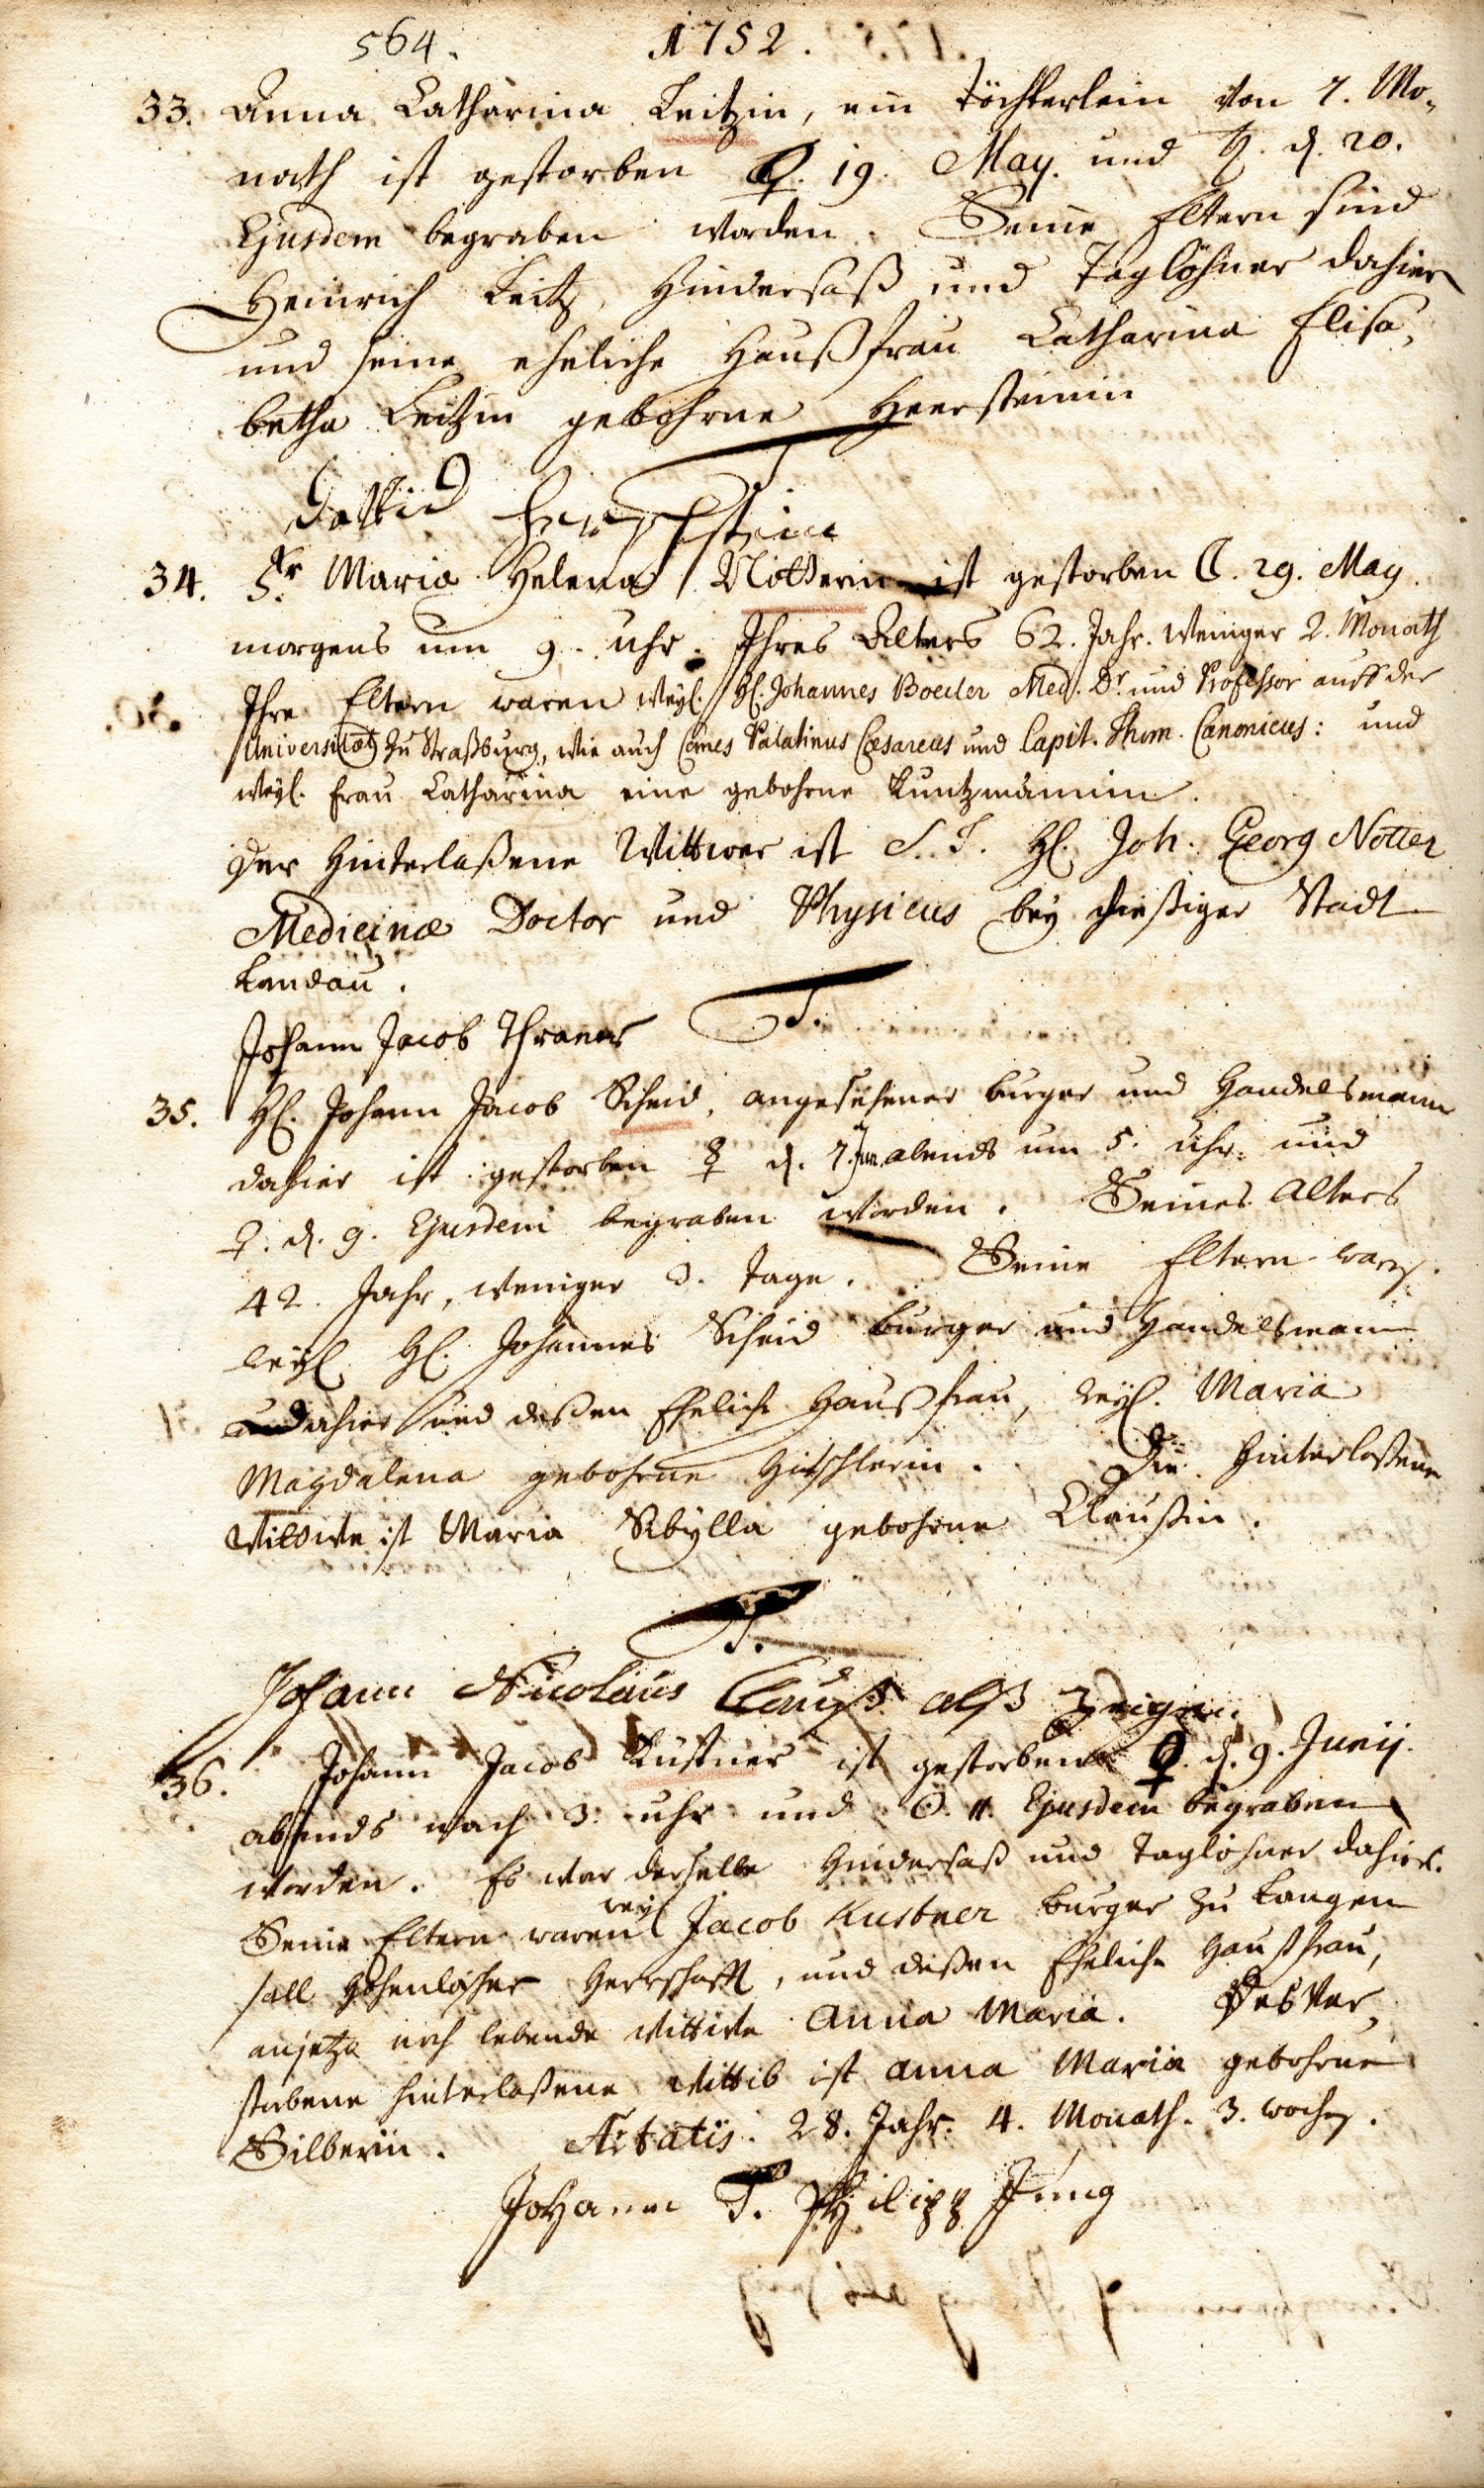 564. 1752.
33. Anna Catharina Leitzin, ein Töchterlein von 7. Mo-
nath ist gestorben ♀. 19. May. und ♄. d. 20.
Ejusdem begraben worden. Seine Eltern sind
Heinrich Leitz, Hindersaß und Taglöhner dahier
und seine eheliche Haußfrau Catharina Elisa-
betha Leitzin gebohrne Heersteinin
T
David Herstein
34. Fr. Maria Helena Notterin ist gestorben ☾. 29. May.
morgens um 9. Uhr. Ihres Alters 62. Jahr. weniger 2. Monath
Ihre Eltern waren weyl. H. Johannes Boecler Med. Dr. und Professor auff der
Universitæt zu Straßburg, wie auch Comes Palatinus Cæsareus und Capit. Thom. Canonicus: und
weyl. Frau Catharina eine gebohrne Kuntzmännin.
Der hinterlaßene Wittwer ist S. T. H. Joh. Georg Notter
Medicinæ Doctor und Physicus bey hießiger Stadt
Landau.
T.
Johann Jacob Thraner
35. H. Johann Jacob Scheid, angesehener burger und Handelsmann
dahier ist gestorben ☿ d. 7. Jun. abends um 5. Uhr und
♀. d. 9. Ejusdem begraben worden. Seines Alters
42. Jahr, weniger 3. Tage. Seine Eltern waren.
weyl. H. Johannes Scheid burger und Handelsmann
dahier und deßen Eheliche Haußfrau, weyl. Maria
Magdalena gebohrne Hitschlerin. Die hinterlaßene
Wittwe ist Maria Sibylla gebohrne Claußin.
T.
Johann Nicolaus Clauß alß Zeigen.
36. Johann Jacob Küstner ist gestorben ♀. d. 9. Junij.
abends nach 3. uhr und ☉. 11. Ejusdem begraben
worden. Es war derselbe Hindersaß und Taglöhner dahier.
Seine Eltern waren weyl Jacob Kustner burger zu Langen
sall Hohenloher Herrschafft, und deßen Eheliche Haußfrau,
anjetzo noch lebende Wittwe Anna Maria. Des Ver-
storbene hinterlaßene Wittib ist Anna Maria gebohrne
Silberin. Ætatis. 28. Jahr. 4. Monath. 3. wochen.
Johann T. Philipp Jung